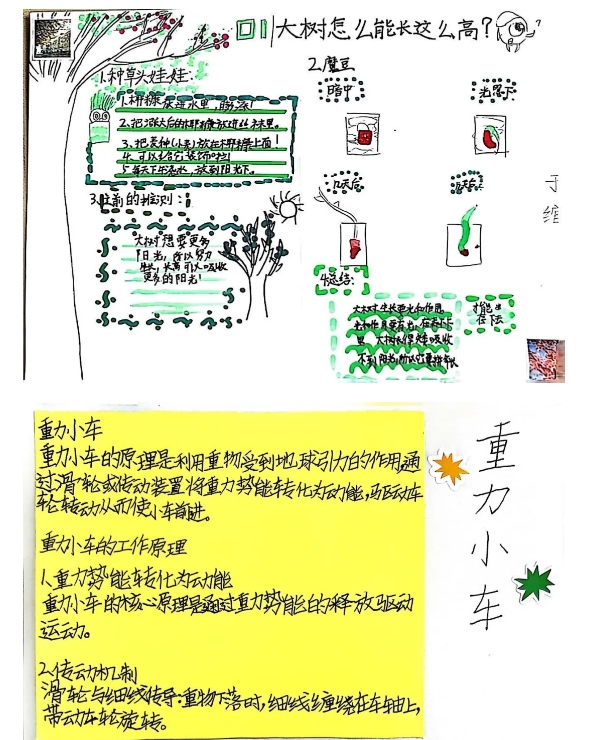 01 大树怎么能长这么高?
1.种草头娃娃:
1.椰糠放进水里,膨涨!
2.把涨大后的椰糠放进丝袜里。
3.把麦种(小麦)放在椰糠上面!
4.可以给它装饰啦!
5.每天下午浇水,放到阳光下。
3.之前的推识:
大树想要更多
阳光,所以努力
生长,长高可以吸收
更多的阳光!
2.魔豆
暗中
光照下
几天后
几天后
4.总结:
大树生长要光合作用。
光合作用要有光,在树下
里,大树很难吸收
不到阳光,所以它要拼命长
才能生
存下去
于
缩
重力小车
重力小车的原理是利用重物受到地球引力的作用,通
过滑轮或传动装置将重力势能转化为动能,驱动车
轮转动从而使小车前进。
重力小车的工作原理
1.重力势能转化为动能
重力小车的核心原理是通过重力势能的释放驱动
运动。
2.传动机制
滑轮与细线传导:重物下落时,细线缠绕在车轴上,
带动车轮旋转。
重力小车